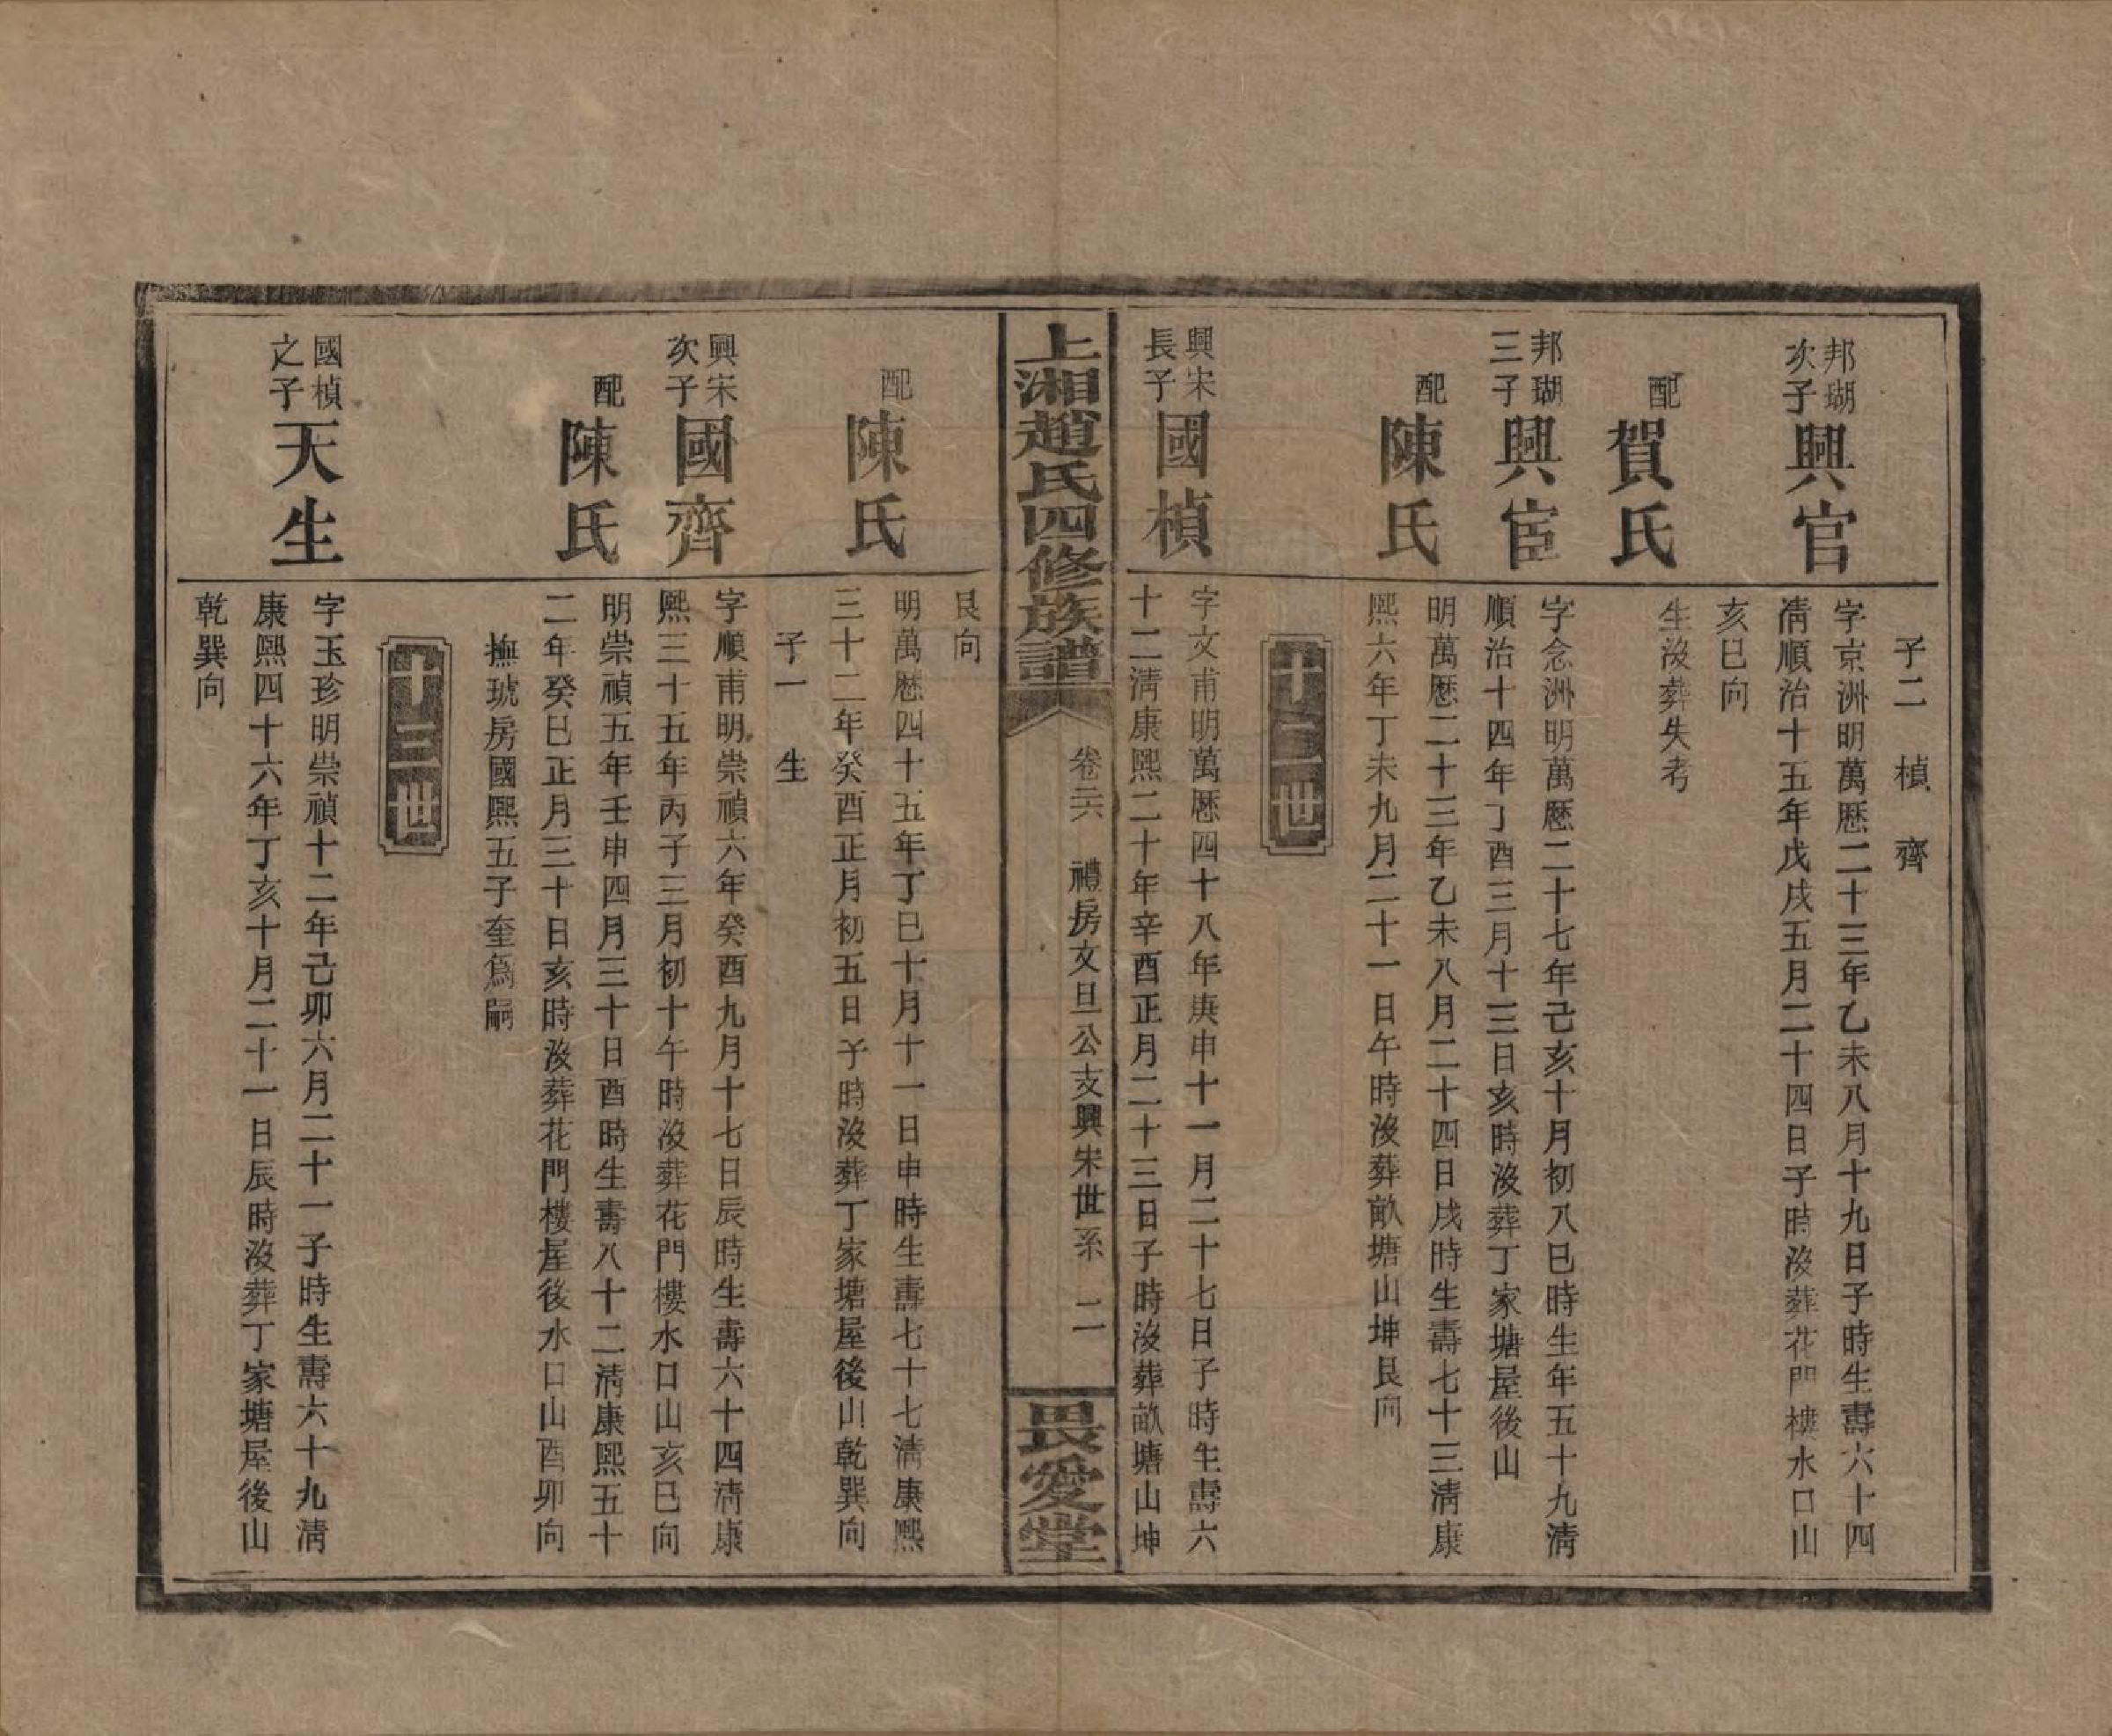 子二　楨　齊
邦瑚
次子
興官
字京洲明萬歷二十三年乙未八月十九日子時生壽六十四
清順治十五年戊戌五月二十四日子時沒葬花門樓水口山
亥巳向
配
賀氏
生沒葬失考
邦瑚
三子
興宦
字念洲明萬歷二十七年己亥十月初八巳時生年五十九清
順治十四年丁酉三月十三日亥時沒葬丁家塘屋後山
配
陳氏
明萬歷二十三年乙未八月二十四日戌時生壽七十三清康
熙六年丁未九月二十一日午時沒葬畝塘山坤艮向
十二世
興宋
長子
國楨
字文甫明萬歷四十八年庚申十一月二十七日子時生壽六
十二清康熙二十年辛酉正月二十三日子時沒葬畝塘山坤
上湘趙氏四修族譜
卷三六　禮房文旦公支興宋世系　二
畏愛堂
艮向
配
陳氏
明萬歷四十五年丁巳十月十一日申時生壽七十七清康熙
三十二年癸酉正月初五日子時沒葬丁家塘屋後山乾巽向
子一　生
興宋
次子
國齊
字順甫明崇禎六年癸酉九月十七日辰時生壽六十四清康
熙三十五年丙子三月初十午時沒葬花門樓水口山亥巳向
配
陳氏
明崇禎五年壬申四月三十日酉時生壽八十二清康熙五十
二年癸巳正月三十日亥時沒葬花門樓屋後水口山酉卯向
撫琥房國熙五子奎爲嗣
十三世
國楨
之子
天生
字玉珍明崇禎十二年己卯六月二十一子時生壽六十九清
康熙四十六年丁亥十月二十一日辰時沒葬丁家塘屋後山
乾巽向